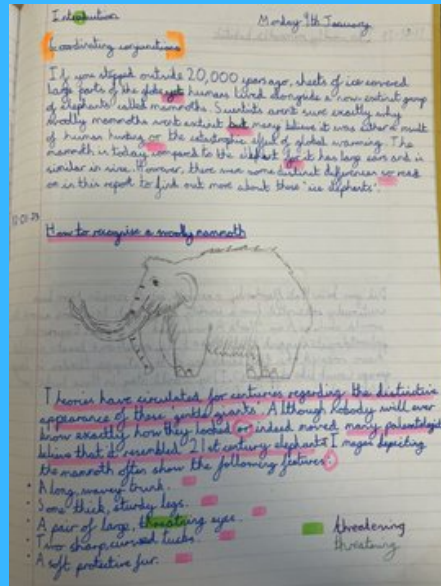 Introduction
Monday 9th January
Coordinating conjunctions
If you stepped outside 20,000 years ago, sheets of ice covered
large parts of the globe yet humans lived alongside a now extinct group
of elephants called mammoths. Scientists aren't sure exactly why
woolly mammoths went extinct but many believe it was either a result
of human hunting or the catastrophic effect of global warming. The
mammoth is today compared to the elephant for it has large ears and is
similar in size. However, there were some distinct differences so read
on in this report to find out more about these 'ice elephants'.
How to recognise a woolly mammoth
Theories have circulated for centuries regarding the distinctive
appearance of these gentle giants. Although nobody will ever
know exactly how they looked or indeed moved, many
believe that it resembled 21st century elephants. Images depicting
the mammoth often show the following features:
A long, wavey trunk.
Some thick, sturdy legs.
A pair of large, threatning eyes.
Two sharp, curved tusks.
A soft protective fur.
threatening